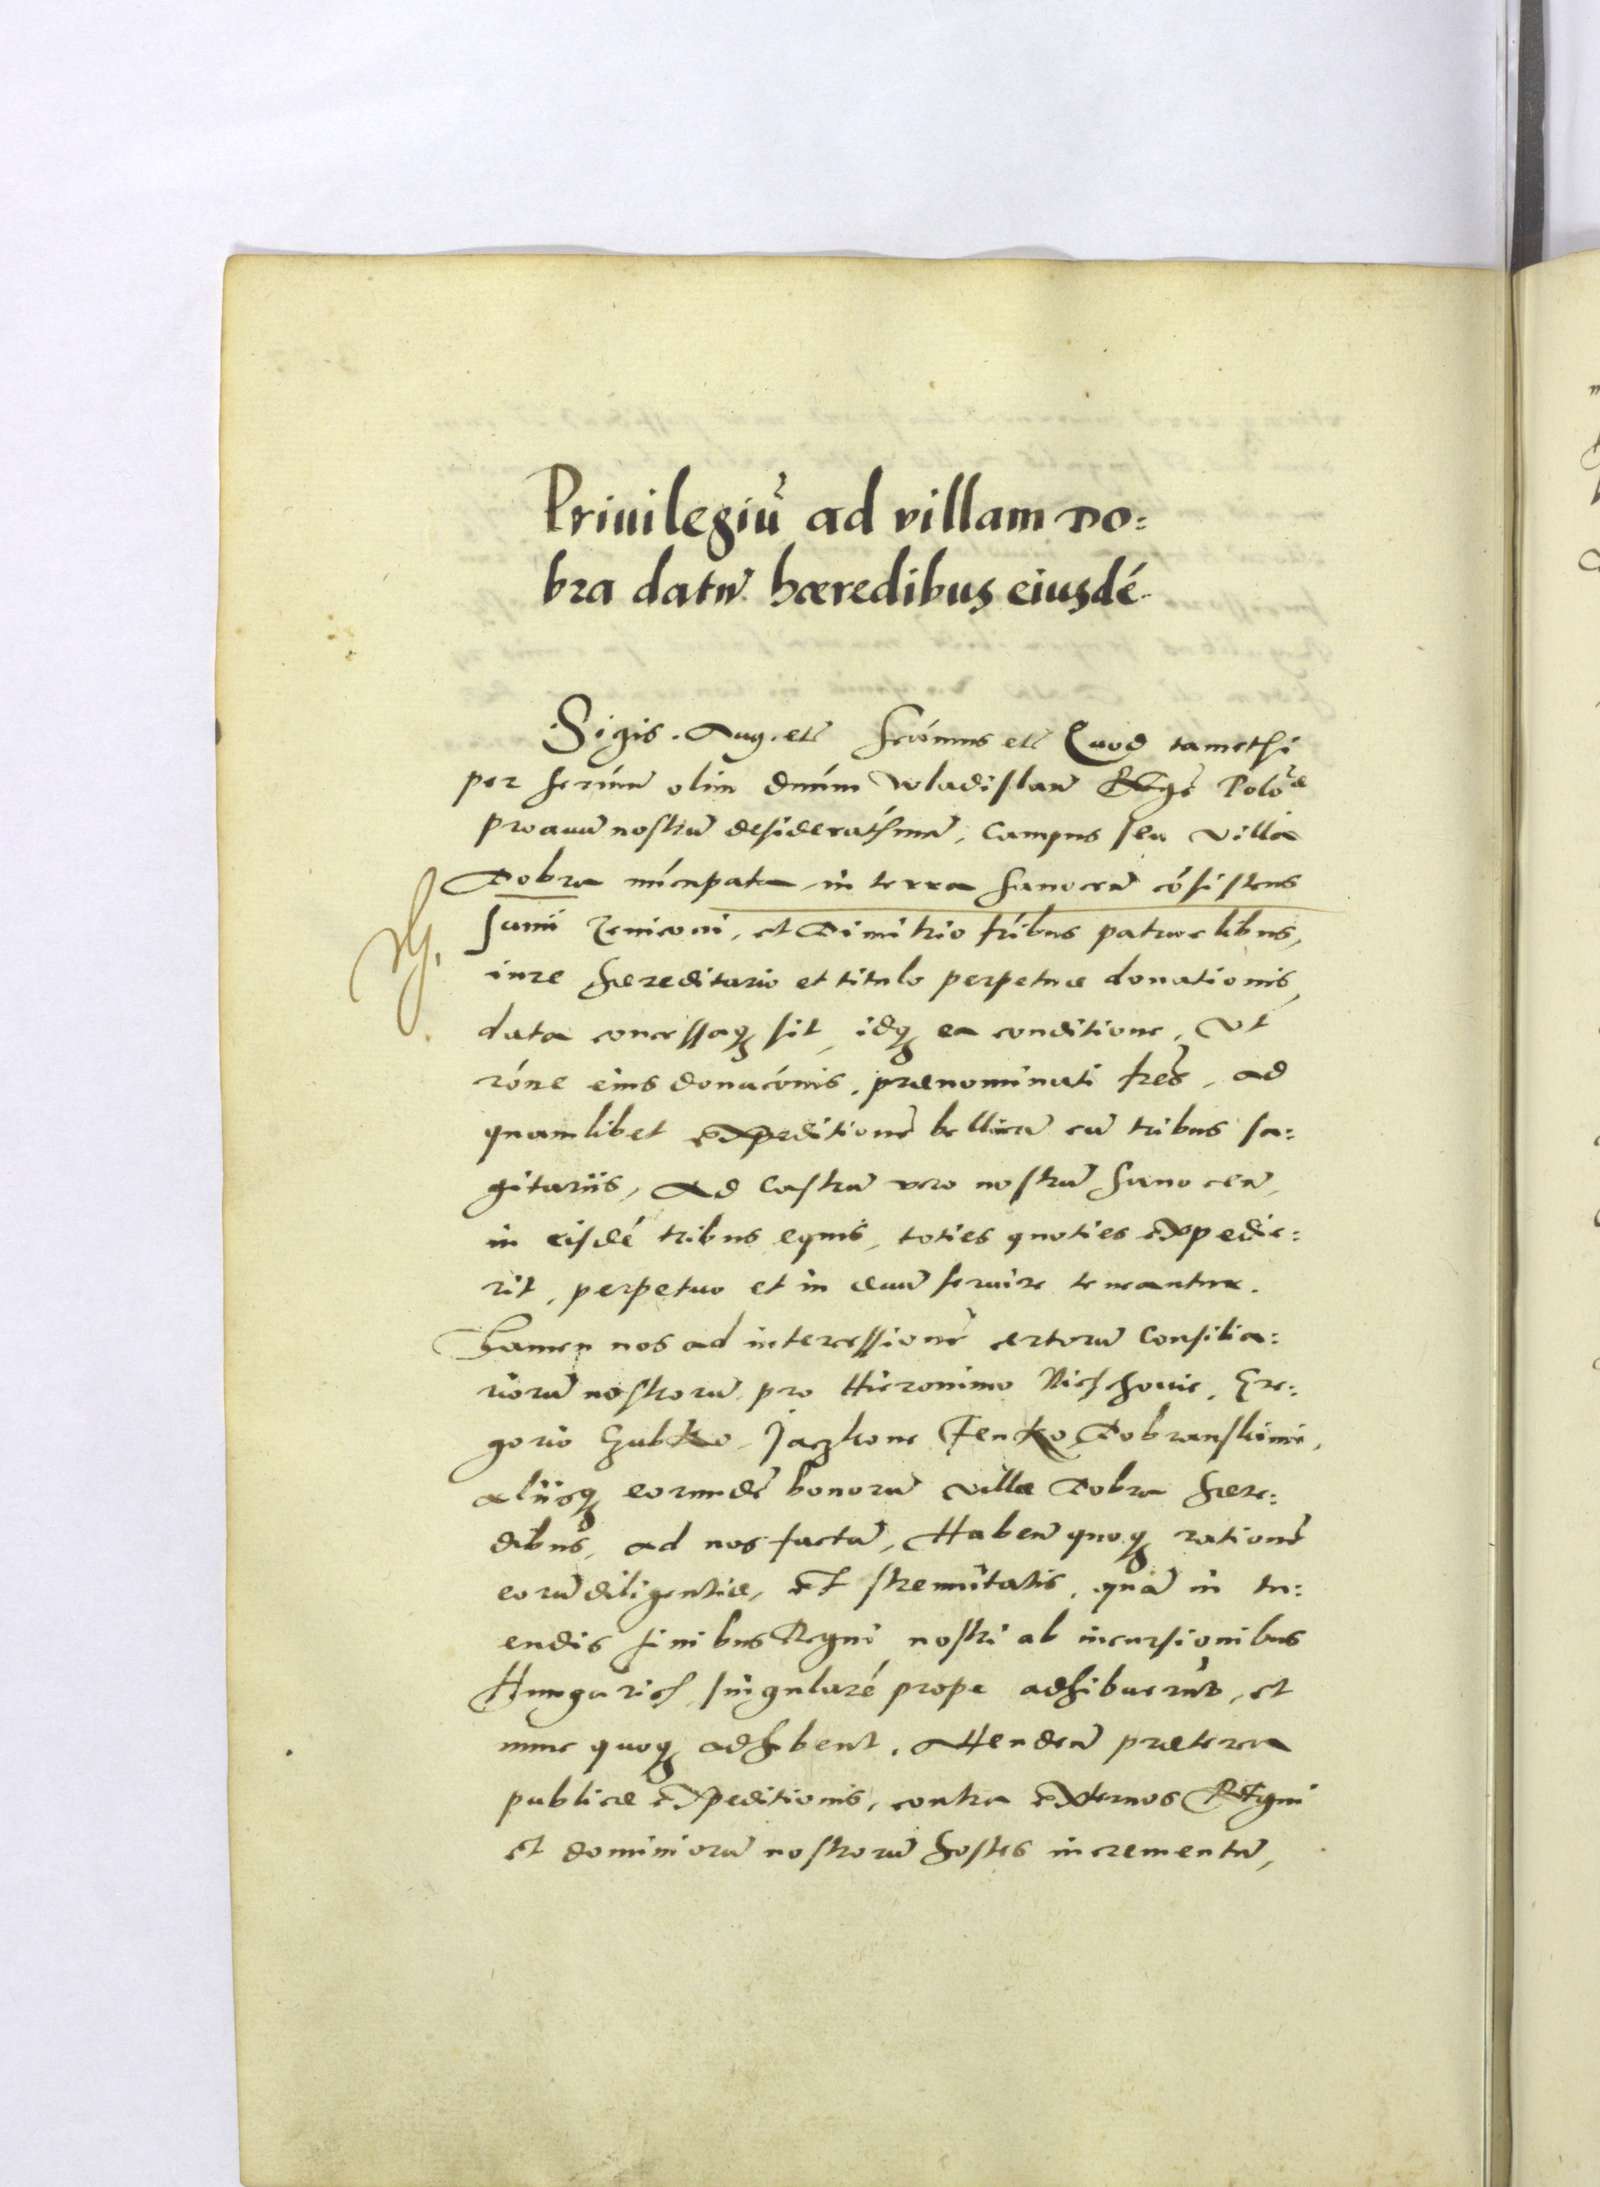 Priuilegiũ ad villam Do:
bra datũ hæredibus eiusdé
Sigis. Aug. etc Sciómus etc Quod tametsi
per serúm olim dnúm Wladislaũ Regẽ Poloæ
proauũ nostrũ desideratssimũ, Campus seu Villa
Dobra núcupata in terra Sanoceñ cósistens
Iunii et Dimitrio fribus patruelibus,
iure hæreditario et titulo perpetuæ donationis,
data concessaq sit, idq ea conditione, Vt
róne eius donacónis, prænominati fres, ad
quamlibet expeditionẽ bellicã cũ tribus sa:
gitariis, Ad Castrũ vero nostrũ Sanoceñ,
in eisdé tribus equis, toties quoties expedie:
rit, perpetuo et in æuũ seruire teneantur.
Tamen nos ad intercessionẽ certorũ Consilia:
riorũ nostrorũ pro Hieronimo Gre:
gorio Hubko, Jaczkone Fenko Dobranskimi,
aliisq eorundẽ bonorũ villæ Dobra hære:
dibus, ad nos factã, Habeñ quoq rationẽ
eorũ diligentiæ, et strenuitatis, quã in tu:
endis finibus Regni nostri ab incursionibus
Hungarich singularé prope adhibuerũt, et
nunc quoq adhibent, Attendeñ præterea
publicæ expeditionis, contra externos Regni
et dominiorũ nostrorũ hostes incrementũ,